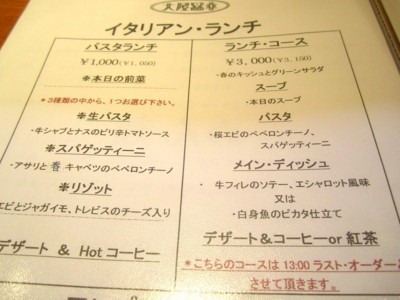 イタリアン・ランチ
パスタランチ
¥1,000(¥1,050)
※本日の前菜
*3種類の中から、1つお選び下さい。
※生パスタ
・牛シャブとナスのピリ辛トマトソース
※スパゲッティーニ
・アサリと春キャベツのペペロンチーノ
※リゾット
エビとジャガイモ、トレビスのチーズ入り
デザート & Hotコーヒー
ランチ・コース
¥3,000(¥3,150)
・春のキッシュとグリーンサラダ
スープ
・本日のスープ
パスタ
・桜エビのペペロンチーノ、
スパゲッティーニ
メイン・ディッシュ
・牛フィレのソテー、エシャロット風味
又は
・白身魚のピカタ仕立て
デザート&コーヒーor 紅茶
*こちらのコースは 13:00 ラスト・オーダーと
させて頂きます。